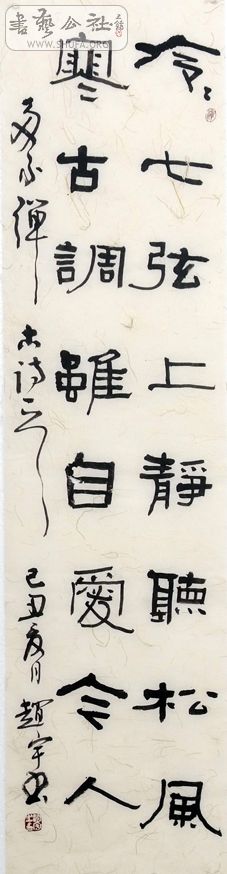 書藝公社
WWW.SHUFA.ORG
泠〻七弦上靜聽松風
寒古調雖自愛今人
多不彈 古詩 己丑夏月趙宇書